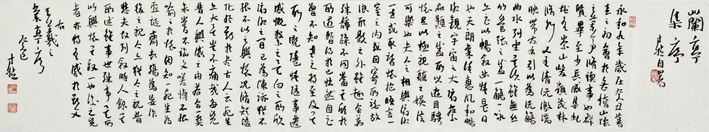 蘭亭
集序
永和九年歲在癸丑暮
春之初會於會稽山陰
之蘭亭脩禊事也群
賢畢至少長咸集此
地有崇山峻領茂林
脩竹又有清流激湍
映帶左右引以為流觴
曲水列坐其次雖無絲
竹管弦之盛一觴一詠
亦足以暢敘幽情是日
也天朗氣清惠風和暢
仰觀宇宙之大俯察
品類之盛所以遊目騁
懷足以極視聽之娛信
可樂也夫人之相與俯仰
一世或取諸懷抱晤言一
室之內或因寄所託放
浪形骸之外雖趣舍萬
殊靜躁不同當其欣於
所遇暫得於己快然自足
不知老之將至及其
所之既倦情隨事遷
感慨係之矣向之所欣
俛仰之間已為陳跡猶不
能不以之興懷況脩短隨
化終期於盡古人云死生
亦大矣豈不痛哉每覽
昔人興感之由若合一契
未嘗不臨文嗟悼不能
喻之於懷固知一死生為
虛誕齊彭殤為妄作
後之視今亦由今之視昔
悲夫故列敘時人錄其
所述雖世殊事異所
以興懷其致一也後之覽
者亦將有感於斯文
右
王羲之
蘭亭序